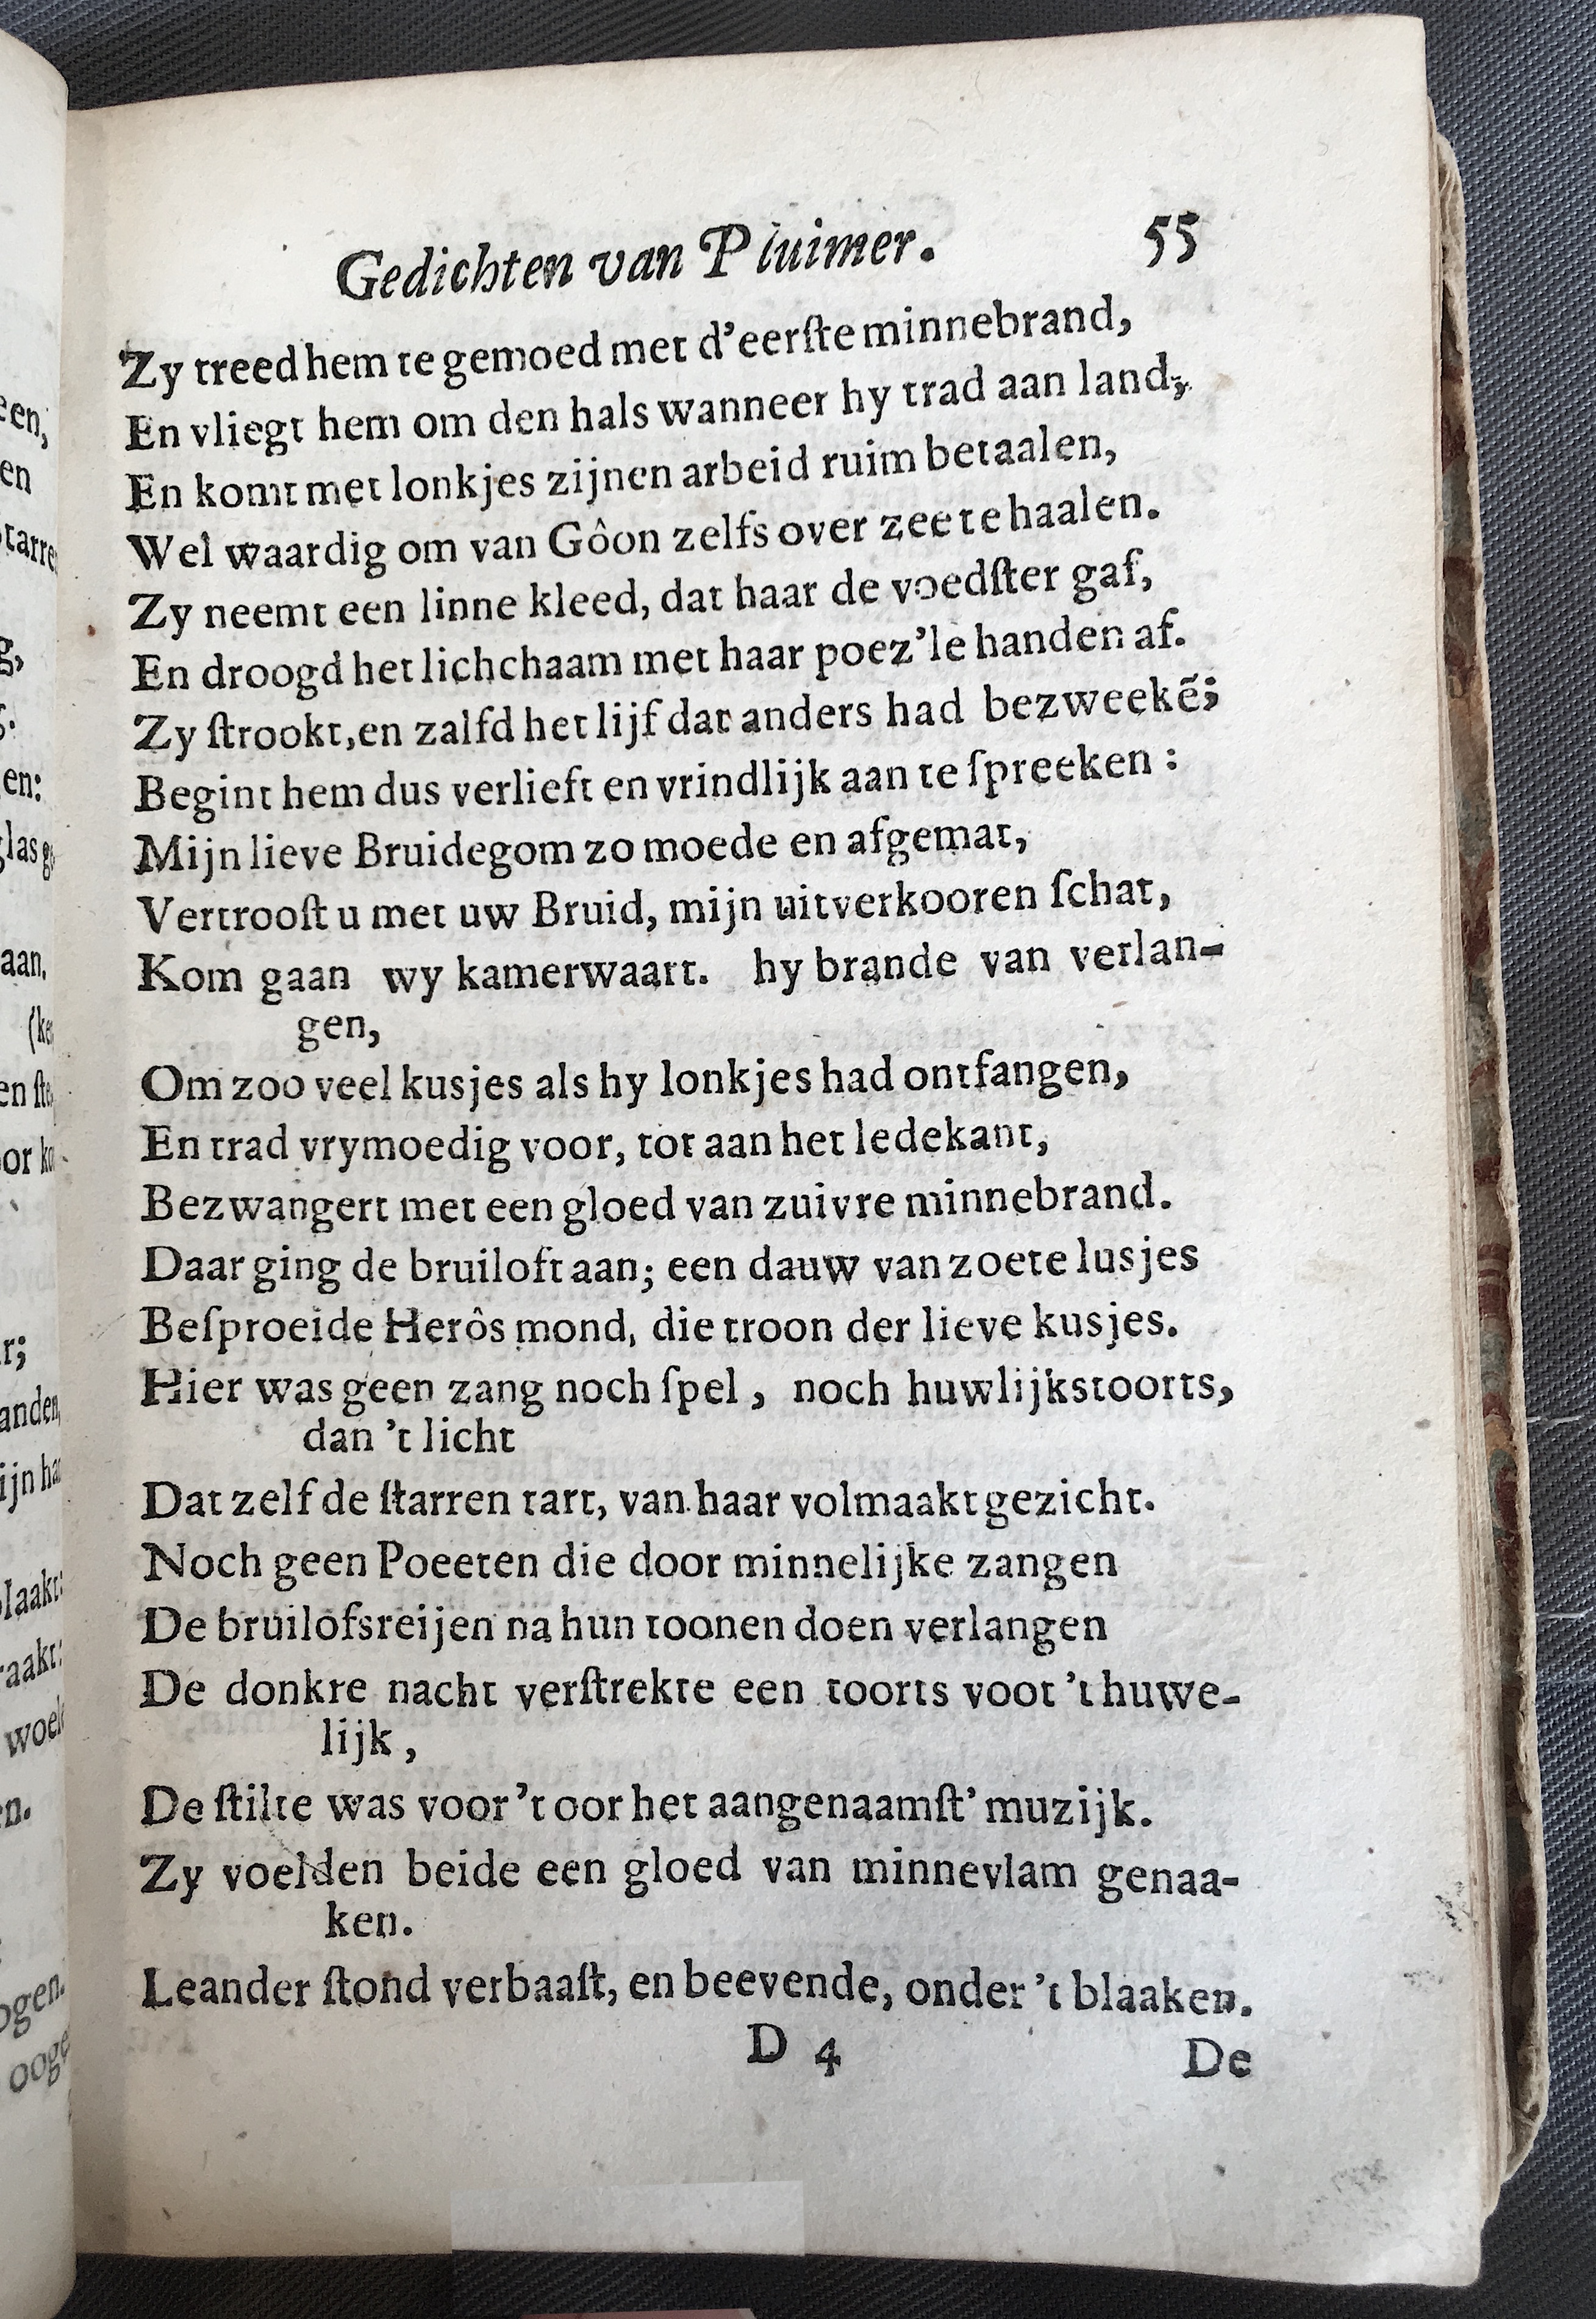 Gedichten van Pluimer. 55
Zy treed hem te gemoed met d'eerſte minnebrand,
En vliegt hem om den hals wanneer hy trad aan land;
En komt met lonkjes zijnen arbeid ruim betaalen,
Wel waardig om van Gôon zelfs over zee te haalen.
Zy neemt een linne kleed, dat haar de voedſter gaf,
En droogd het lichchaam met haar poez'le handen af.
Zy ſtrookt, en zalfd het lijf dat anders had bezweekẽ;
Begint hem dus verlieft en vrindlijk aan te ſpreeken:
Mijn lieve Bruidegom zo moede en afgemat,
Vertrooſt u met uw Bruid, mijn uitverkooren ſchat,
Kom gaan wy kamerwaart. hy brande van verlan-
gen,
Om zoo veel kusjes als hy lonkjes had ontfangen,
En trad vrymoedig voor, tot aan het ledekant,
Bezwangert met een gloed van zuivre minnebrand.
Daar ging de bruiloft aan; een dauw van zoete lusjes
Beſproeide Herôs mond, die troon der lieve kusjes.
Hier was geen zang noch ſpel, noch huwlijkstoorts,
dan 't licht
Dat zelf de ſtarren tart, van haar volmaakt gezicht.
Noch geen Poeeten die door minnelijke zangen
De bruilofsreijen na hun toonen doen verlangen
De donkre nacht verſtrekte een toorts voot 't huwe-
lijk,
De ſtilte was voor 't oor het aangenaamſt' muzijk.
Zy voelden beide een gloed van minnevlam genaa-
ken.
Leander ſtond verbaaſt, en beevende, onder 't blaaken.
D 4 De